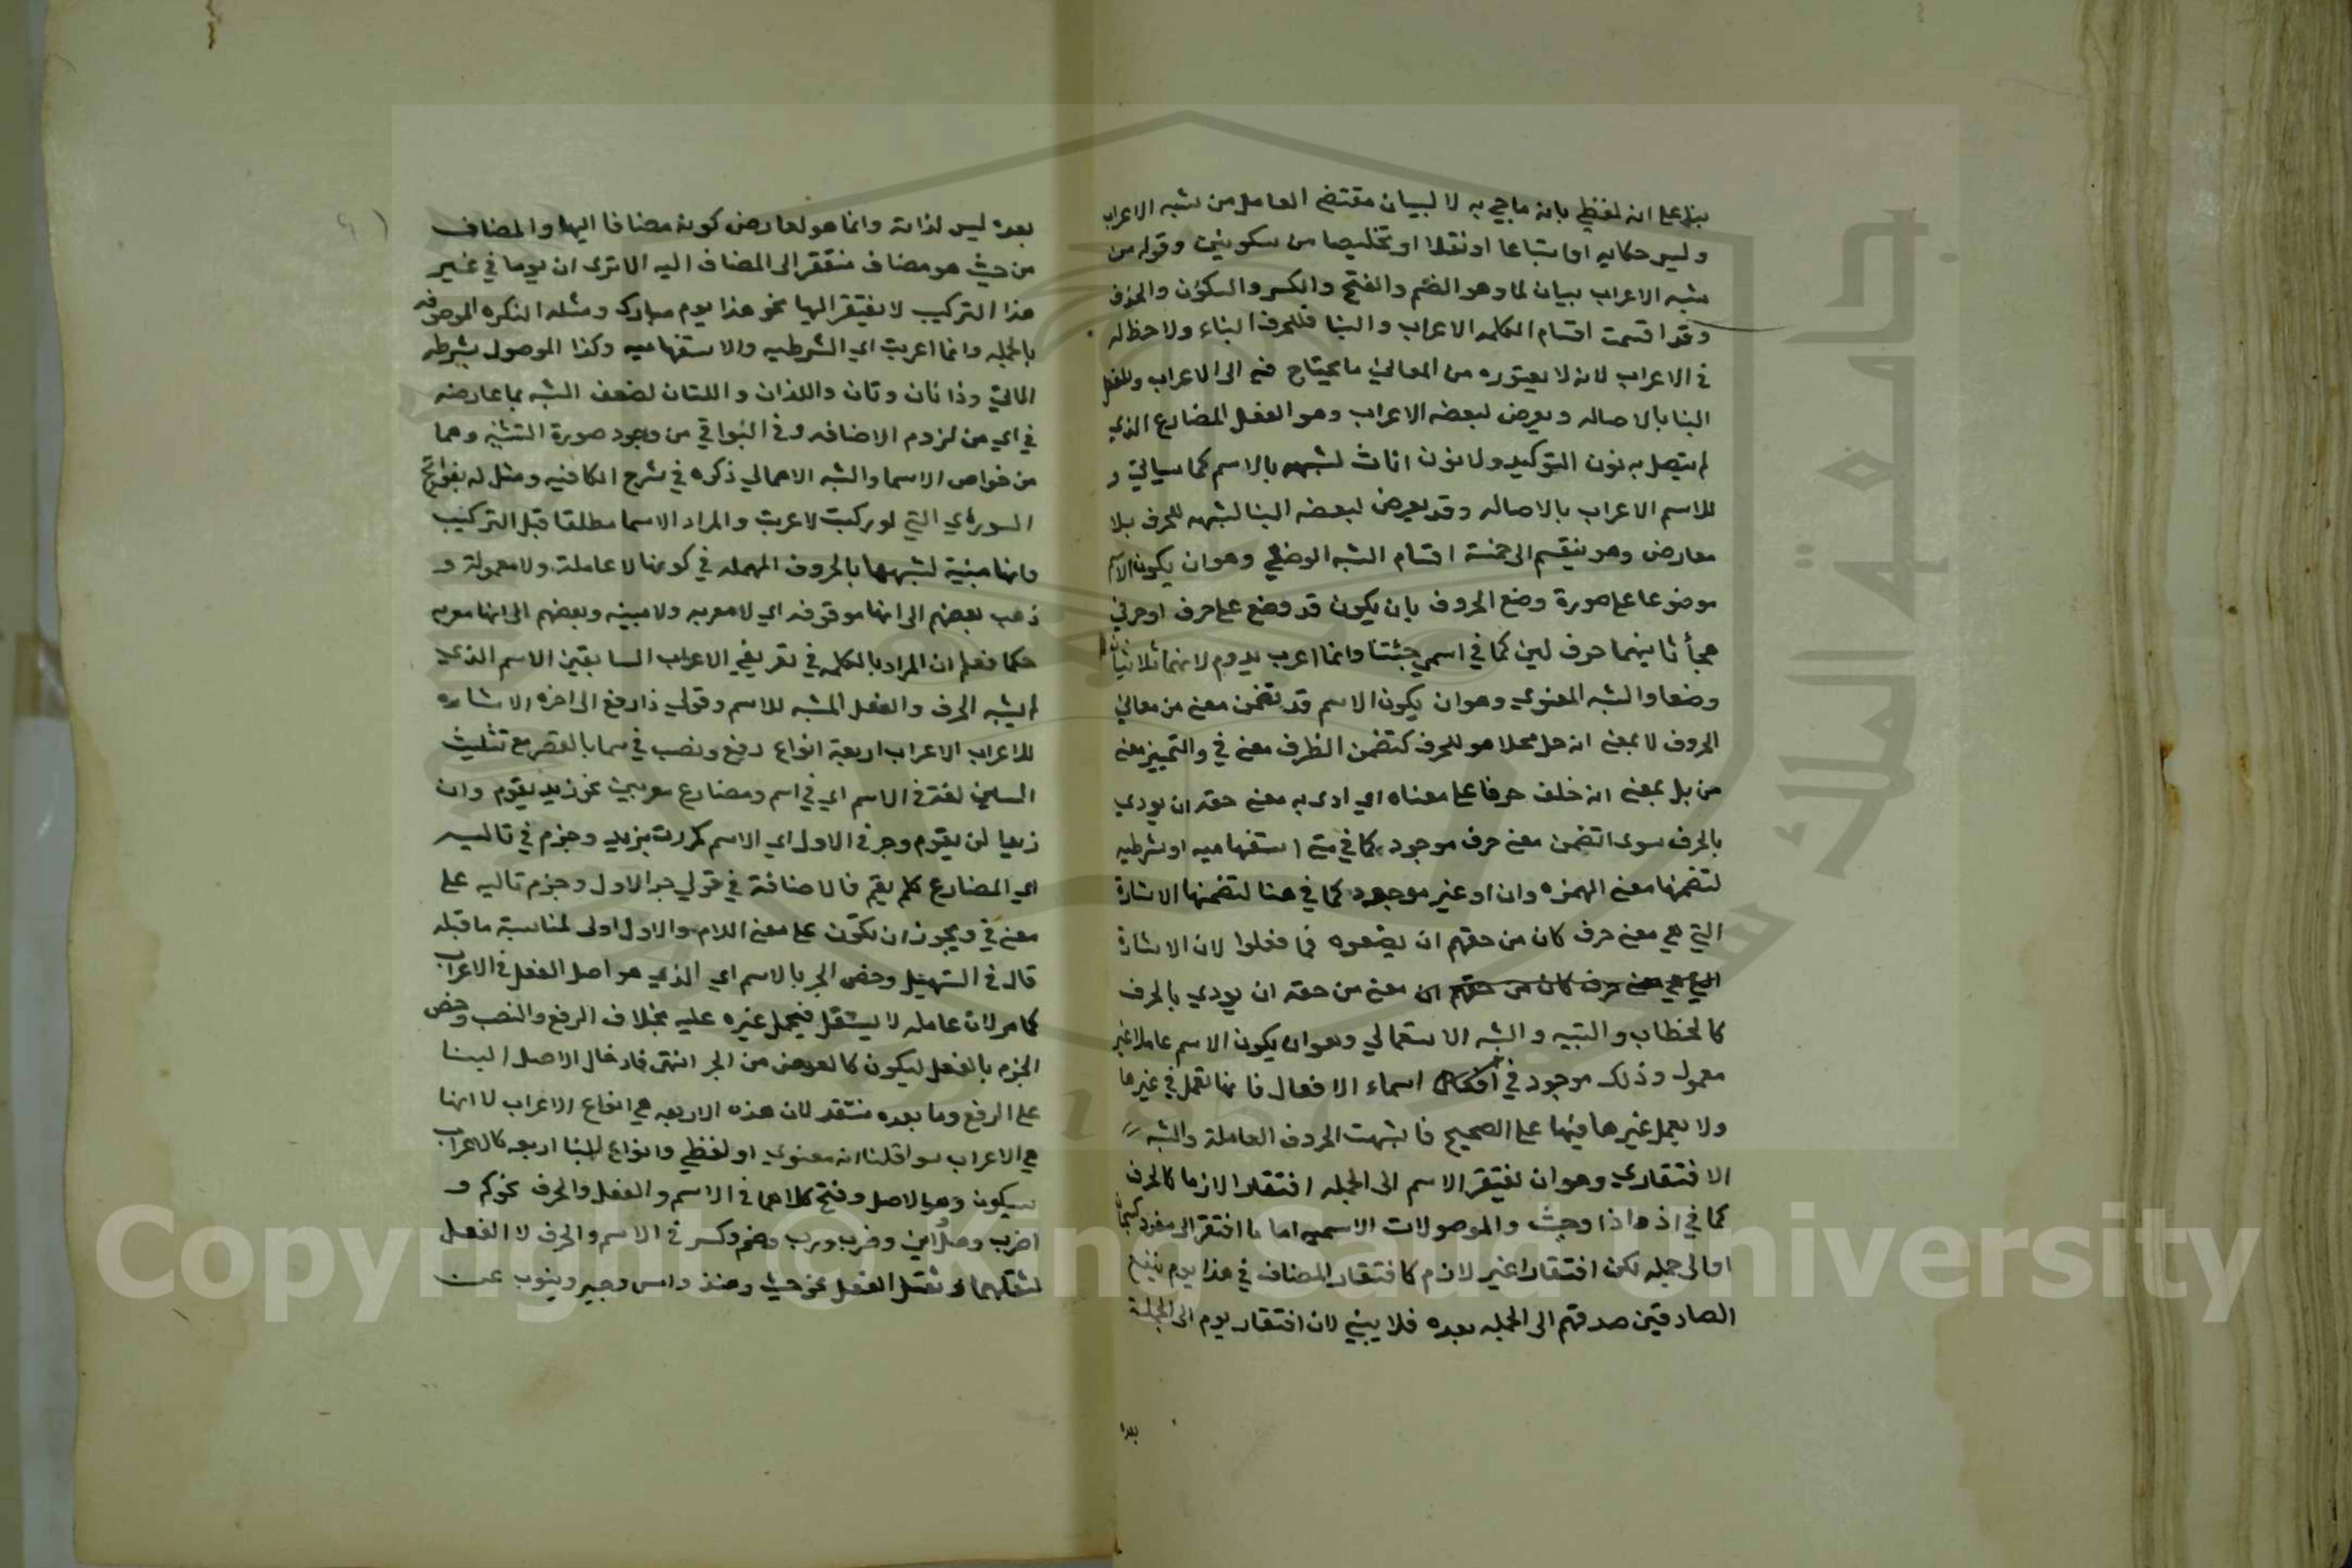 بناء على انه لفظي بانه ما جيء به لا لبيان مقتضى العامل من شبه الاعراب
وليس حكايه او اتباعا او نقلا او تخليصا من سكونين وقوله من
شبه الاعراب بيان لما وهو الضم والفتح والكسر والسكون والحذف
وقد اقتسمت اقسام الكلمه الاعراب والبنا فللحرف البناء ولا حظ له
في الاعراب لانه لا يعتوره من المعاني ما يحتاج فيه الى الاعراب وللفعل
البنا بالاصاله ويعرض لبعضه الاعراب وهو الفعل المضارع الذي
لم يتصل به نون التوكيد ولا نون اناث لشبهه بالاسم كما سياتي و
للاسم الاعراب بالاصاله وقد يعرض لبعضه البنا لشبهه للحرف بلا
معارض وهو ينقسم الى خمسة اقسام الشبه الوضعي وهو ان يكون الاسم
موضوعا على صورة وضع الحروف بان يكون قد وضع على حرف او حرفي
هجأ ثانيهما حرف لين كما في اسمي جئتنا وانما اعرب يد ودم لانهما ثلاثيان
وضعا والشبه المعنوي وهو ان يكون الاسم قد تضمن معنى من معاني
الحروف لا بمعنى انه حل محلا هو للحرف كتضمن الظرف معنى في والتمييز معنى
من بل بمعنى انه خلف حرفا على معناه اي ادى به معنى حقه ان يودي
بالحرف سوى اتضمن معنى حرف موجود كما في متى استفهاميه او شرطيه
لتضمنها معنى الهمزه وان او غير موجود كما في هنا لتضمنها الاشارة
التي هي معنى حرف كان من حقهم ان يضعوه فما فعلوا لان الاشارة
التي هي معنى حرف كان من حقهم ان معنى من حقه ان يودي بالحرف
كالخطاب والتنبيه والشبه الاستعمالي وهو ان يكون الاسم عاملا غير
معمول وذلك موجود في اسماء الافعال فانها تعمل في غيرها
ولا يعمل غيرها فيها على الصحيح فاشبهت الحروف العاملة والشبه
الافتقاري وهو ان يفتقر الاسم الى الجمله افتقارا لازما كالحرف
كما في اذ واذا وحيث والموصولات الاسميه اما ما افتقر الى مفرد كسبحان
او الى جمله لكن افتقارا غير لازم كافتقار المضاف في هذا يوم ينفع
الصادقين صدقهم الى الجمله بعده فلا يبنى لان افتقار يوم الى الجملة
بعده
بعده ليس لذاته وانما هو لعارض كونه مضافا اليها والمضاف
من حيث هو مضاف مفتقر الى المضاف اليه الا ترى ان يوما في غير
هذا التركيب لا يفتقر اليها نحو هذا يوم مبارك ومثله النكره الموصوفه
بالجمله وانما اعربت اي الشرطيه والاستفهاميه وكذا الموصول بشرطه
الاتي وذان وتان واللذان واللتان لضعف الشبه بما عارضه
في اي من لزوم الاضافه وفي البواقي من وجود صورة التثنيه وهما
من خواص الاسما والشبه الاهمالي ذكره في شرح الكافيه ومثل له بفواتح
السور اي التي لو ركبت لاعربت والمراد الاسما مطلقا قبل التركيب
وانها مبنية لشبهها بالحروف المهمله في كونها لا عاملة ولا معمولة و
ذهب بعضهم الى انها موقوفه اي لا معربه ولا مبنيه وبعضهم الى انها معربه
حكما فعلم ان المراد بالكلمه في تعريفي الاعراب السابقين الاسم الذي
لم يشبه الحرف والفعل المشبه للاسم وقولي ذا رفع الى اخره الاشاره
للاعراب الاعراب اربعة انواع رفع ونصب في سما بالقصر مع تثليث
السين لغة في الاسم اي في اسم ومضارع معربين نحو زيد يقوم وان
زيدا لن يقوم وجر في الاول اي الاسم كمررت بزيد وجزم في تاليه
اي المضارع كلم يقم فالاضافة في قولي جر الاول وجزم تاليه على
معنى في ويجوز ان تكون على معنى اللام والاول اولى لمناسبة ما قبله
قال في التسهيل وخص الجر بالاسم اي الذي هو اصل الفعل في الاعراب
كما مر لان عامله لا يستقل فيحمل غيره عليه بخلاف الرفع والنصب وخص
الجزم بالفعل ليكون كالعوض من الجر انتهى فادخال الاصل البنا
على الرفع وما بعده منتقد لان هذه الاربعه هي انواع الاعراب لا انها
هي الاعراب سوا قلنا انه معنوي او لفظي وانواع البنا اربعه كالاعراب
سكون وهو الاصل وفتح كلاهما في الاسم والفعل والحرف نحو كم و
اضرب وهل واين وضرب ورب وضم وكسر في الاسم والحرف لا الفعل
لثقلهما وثقل الفعل نحو حيث ومنذ وامس وجير وينوب عن
جامعة الملك سعود
1957
Copyright © King Saud University